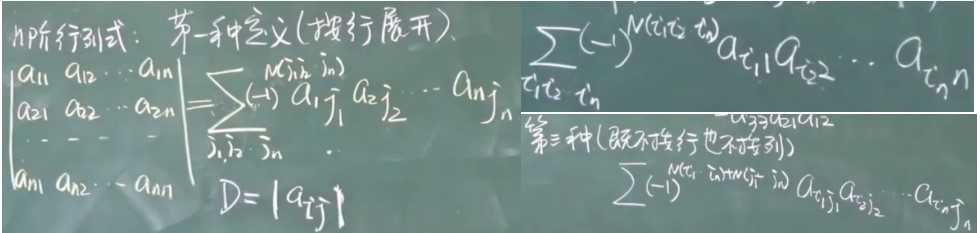 n阶行列式: 第一种定义(按行展开).
|a₁₁ a₁₂ ⋯ a₁ₙ|
|a₂₁ a₂₂ ⋯ a₂ₙ|
|- - - -|
|aₙ₁ aₙ₂ ⋯ aₙₙ|
= ∑_{j₁j₂⋯jₙ} (-1)^{N(j₁j₂⋯jₙ)} a_{1j₁} a_{2j₂} ⋯ a_{njₙ}
D=|a_{ij}|
∑_{i₁i₂⋯iₙ} (-1)^{N(i₁i₂⋯iₙ)} a_{i₁1} a_{i₂2} ⋯ a_{iₙn}
-a₃₃a₂₁a₁₂
第三种(既不按行也不按列)
∑(-1)^{N(i₁⋯iₙ)+N(j₁⋯jₙ)} a_{i₁j₁} a_{i₂j₂} ⋯ a_{iₙjₙ}